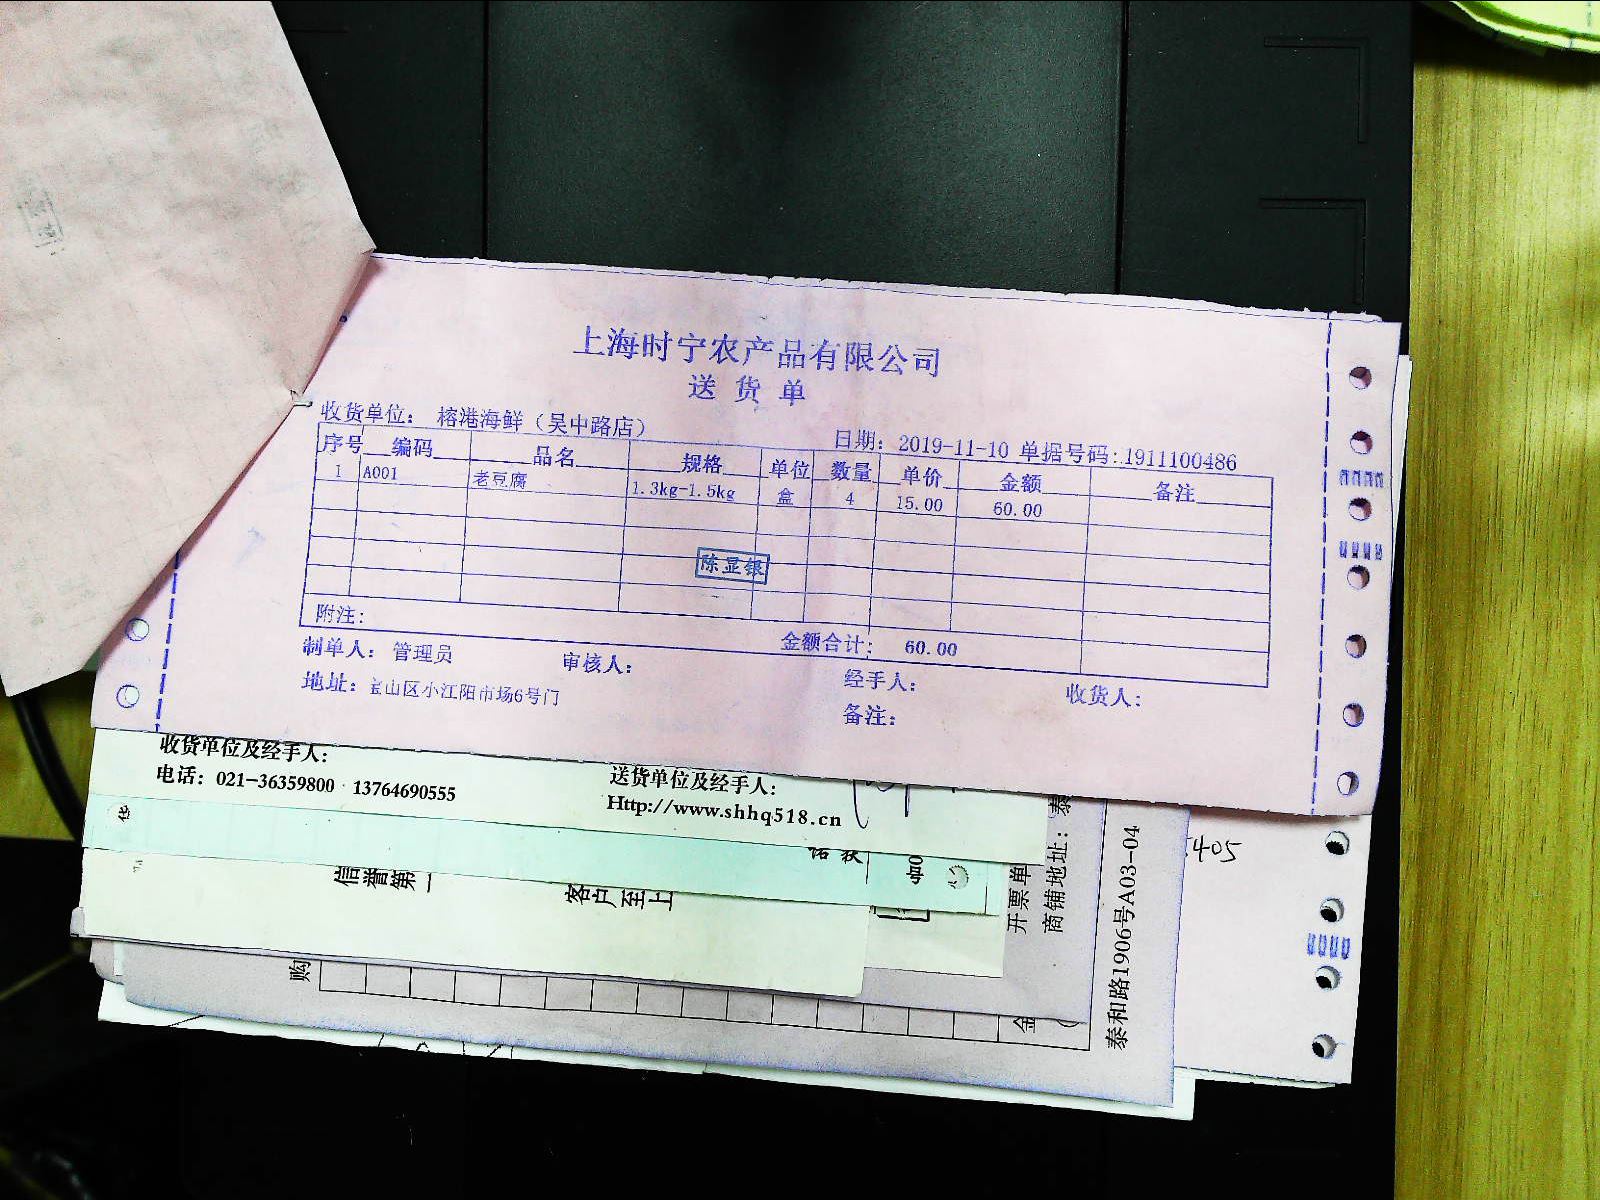 上海时宁农产品有限公司
送货单
收货单位: 榕港海鲜（吴中路店） 日期: 2019-11-10 单据号码:1911100486
序号 编码 品名 规格 单位 数量 单价 金额 备注
1 A001 老豆腐 1.3kg-1.5kg 盒 4 15.00 60.00
陈显银
附注: 金额合计: 60.00
制单人: 管理员 审核人: 经手人: 收货人:
地址: 宝山区小江阳市场6号门 备注:
收货单位及经手人: 送货单位及经手人:
电话: 021-36359800 13764690555 Http://www.shhq518.cn
信誉第一 客户至上
购
金
开票单
商铺地址: 泰
泰和路1906号A03-04
405